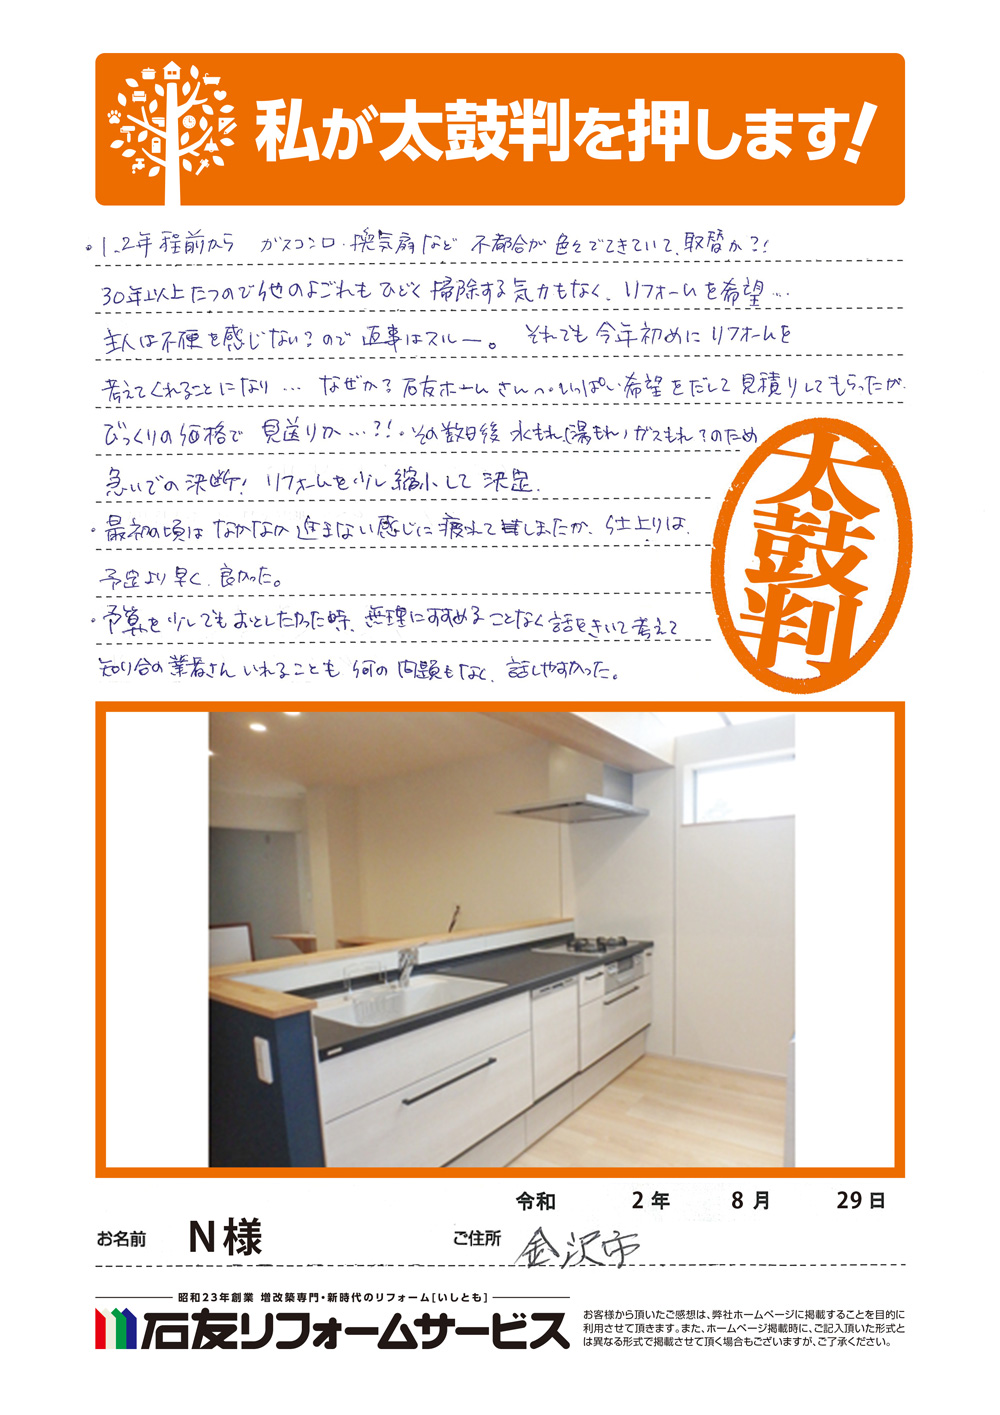 私が太鼓判を押します!
・1、2年程前から ガスコンロ・換気扇など 不都合が色々でてきていて、取替か?!
30年以上たつので他のよごれもひどく掃除する気力もなく、リフォームを希望…
主人は不便を感じない?ので返事はスルー。 それでも今年初めにリフォームを
考えてくれることになり… なぜか?石友ホームさんへ・いっぱい希望をだして見積りしてもらったが
びっくりの価格で 見送りか…?!・その数日後 水もれ(湯もれ)ガスもれ?のため
急いでの決断! リフォームを少し縮小して決定。
・最初の頃はなかなか進まない感じに疲れて しましたが、仕上りは、
予定より早く、良かった。
・予算を少しでもおとしたかった時、無理にすすめることなく話をきいて考えて
知り合の業者さんいれることも何の問題もなく、話しやすかった。
太鼓判
令和 2年 8月 29日
お名前 N様 ご住所 金沢市
昭和23年創業 増改築専門・新時代のリフォーム[いしとも]
石友リフォームサービス
お客様から頂いたご感想は、弊社ホームページに掲載することを目的に
利用させて頂きます。また、ホームページ掲載時に、ご記入頂いた形式と
は異なる形式で掲載させて頂く場合もございますが、ご了承ください。